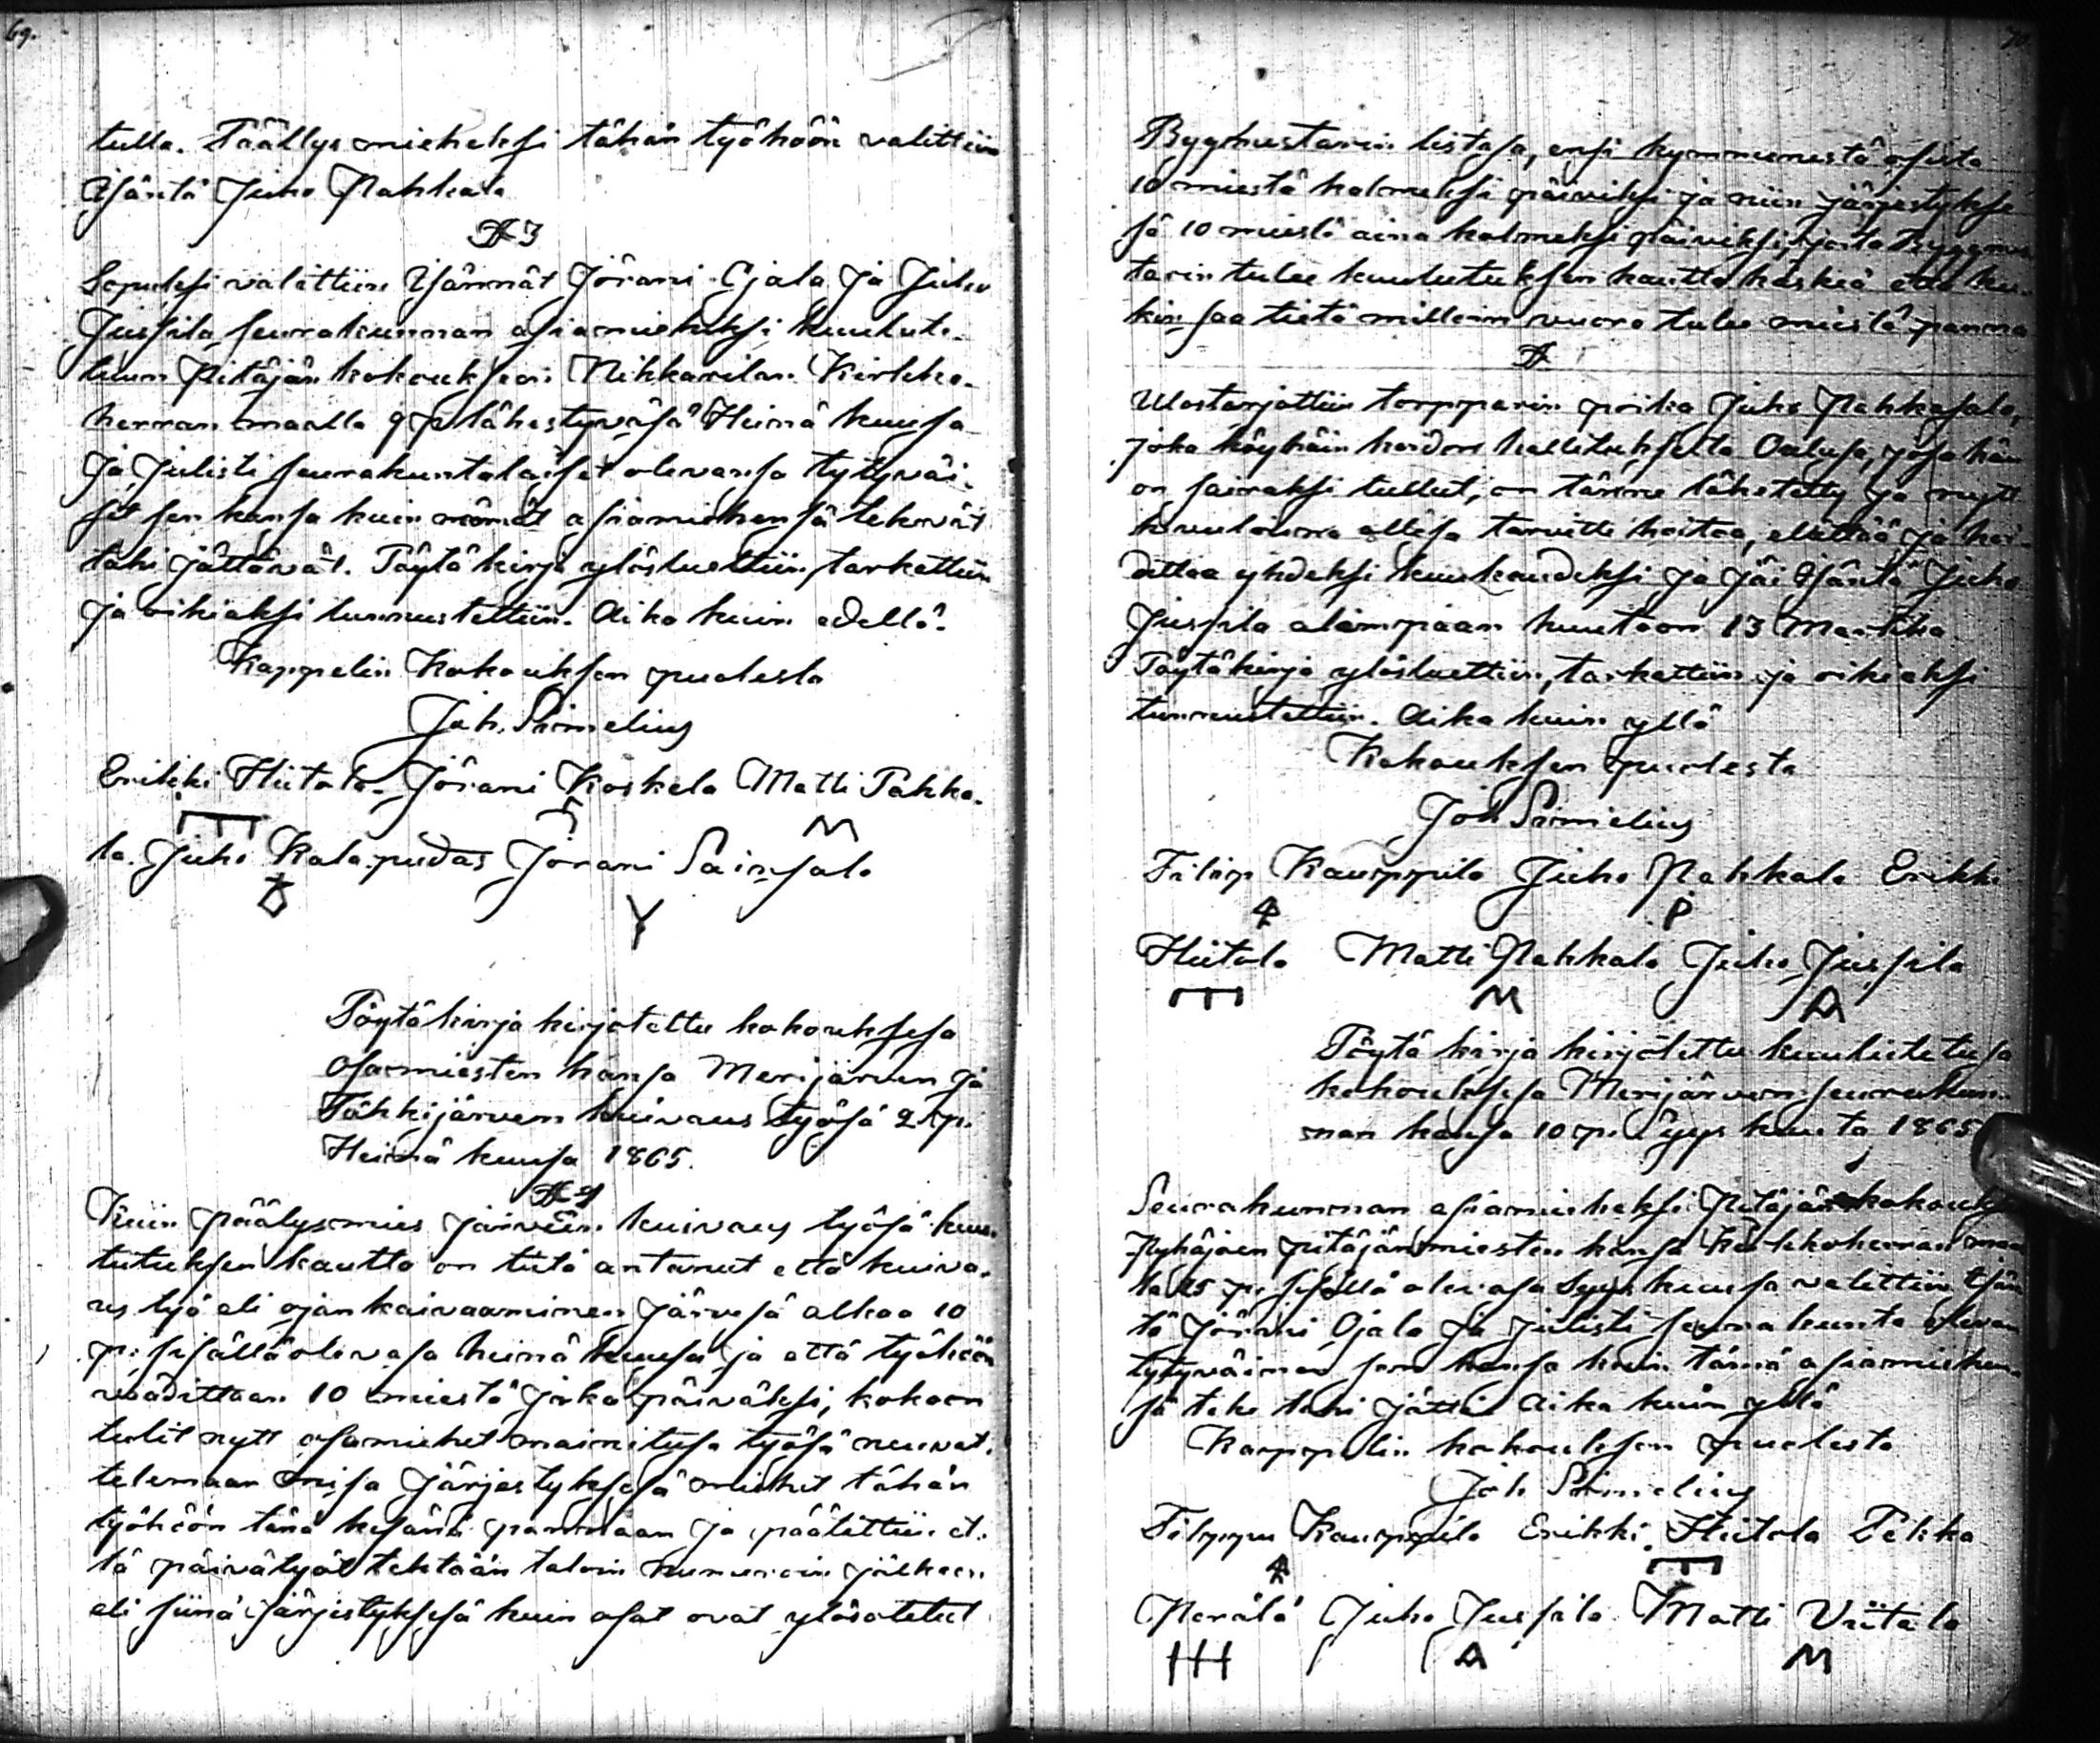 69.
tulla. Päällysmieheksi tähän työhöön valittiin
Isäntä Juho Pahkala
§ 3
Lopuksi valittiin Isännät Jörani Ojala ja Juho
Juspila seurakunnan asiamieheksi kuulute-
tuun Pitäjän kokoukseen Nikkarilan Kirkko-
herran maalla 9 p lähestyväsä Heinä kuusa
ja julisti seurakuntalaiset olevansa tytyväi-
set sen kansa kuin nämät asiamiehensä tekevät
tahi jättävät. Pöytäkirja ylösluettiin, tarkettiin
ja oikiaksi tunnustettiin. Aika kuin edellä.
Kappelin Kokouksen puolesta
Joh. Simelius
Erikki Hiitola Jörani Koskela Matti Pahka-
la. Juho Kalapudas Jörani Sainsalo
M
Y
Pöytäkirja kirjotettu kokouksesa
osamiesten kansa Merijärven ja
Tähkijärven kuivaus työsä 2 p.
Heinä kuusa 1865.
Kuin päälysmies järvein kuivaus työsä kuu-
tutuksen kautta on tietä antanut että kuiva-
us työ eli ojan kaivaaminen järvesä alkaa 10
p. sisälläolevasa heinä kuusa ja että työhöön
vaaditaan 10 miestä joka päiväksi, kokoon
tulit nytt osamiehet mainitusa työsä neuvot-
telemaan misä järjestyksesä miehet tähän
työhöön tänä kesänä pannaan ja päätettiin et-
tä päivätyöt tehtään taloin numeroin jälkeen
eli siinä järjestyksesä kuin osat ovat ylösotetut
70
Byghmestarin listasa, ensi kymmenestä osista
10 miestä kolmeksi päiviksi ja niin järjestykse-
sä 10 miestä aina kolmeksi päiviksi, josta byggmes
tarin tulee kuulutuksen kautta käskiä että ku-
kin saa tietä milloin vuoro tulee miestä panna
§
Ulostarjottiin torpparin poika Juho Pahkasalo,
joka köyhäin hoidon hallitukselta Oulusa, josa hän
on sairaksi tullut, on tänne lähetetty ja nytt
kuulomma ollesa tarvitte hoitoa, elättää ja hoi-
dettaa yhdeksi kuukaudeksi ja jäi Isäntä Juho
Juspila alimpaan huutoon 13 Markka
Pöytäkirja ylösluettiin, tarkettiin ja oikiaksi
tunnustettiin. Aika kuin yllä
Kokouksen puolesta
Joh Simelius
Filip Kauppila Juho Pahkala Erikki
P
Hiitola Matti Pahkala Juho Juspila
M A
Pöytä kirja kirjotettu kuulutetusa
kokouksesa Merijärven seurakun-
nan kansa 10 p. Syys kuuta 1865
Seurakunnan asiamieheksi Pitäjänkokouksen
Pyhäjoen pitäjänmiesten kansa Kirkkoherran maa
la 25 p. sisällä olevasa Syys kuusa valittiin Isän
tä Jörani Ojala ja julisti seurakunta olevan
tytyväinen sen kansa kuin tämä asiamiehen-
sä teke tahi jättä. Aika kuin yllä
Kappelin kokouksen puolesta
Joh Simelius
Filppu Kauppila Erikki Hiitola Pekka
Perälä Juho Juspila Matti Viitala
HH A M